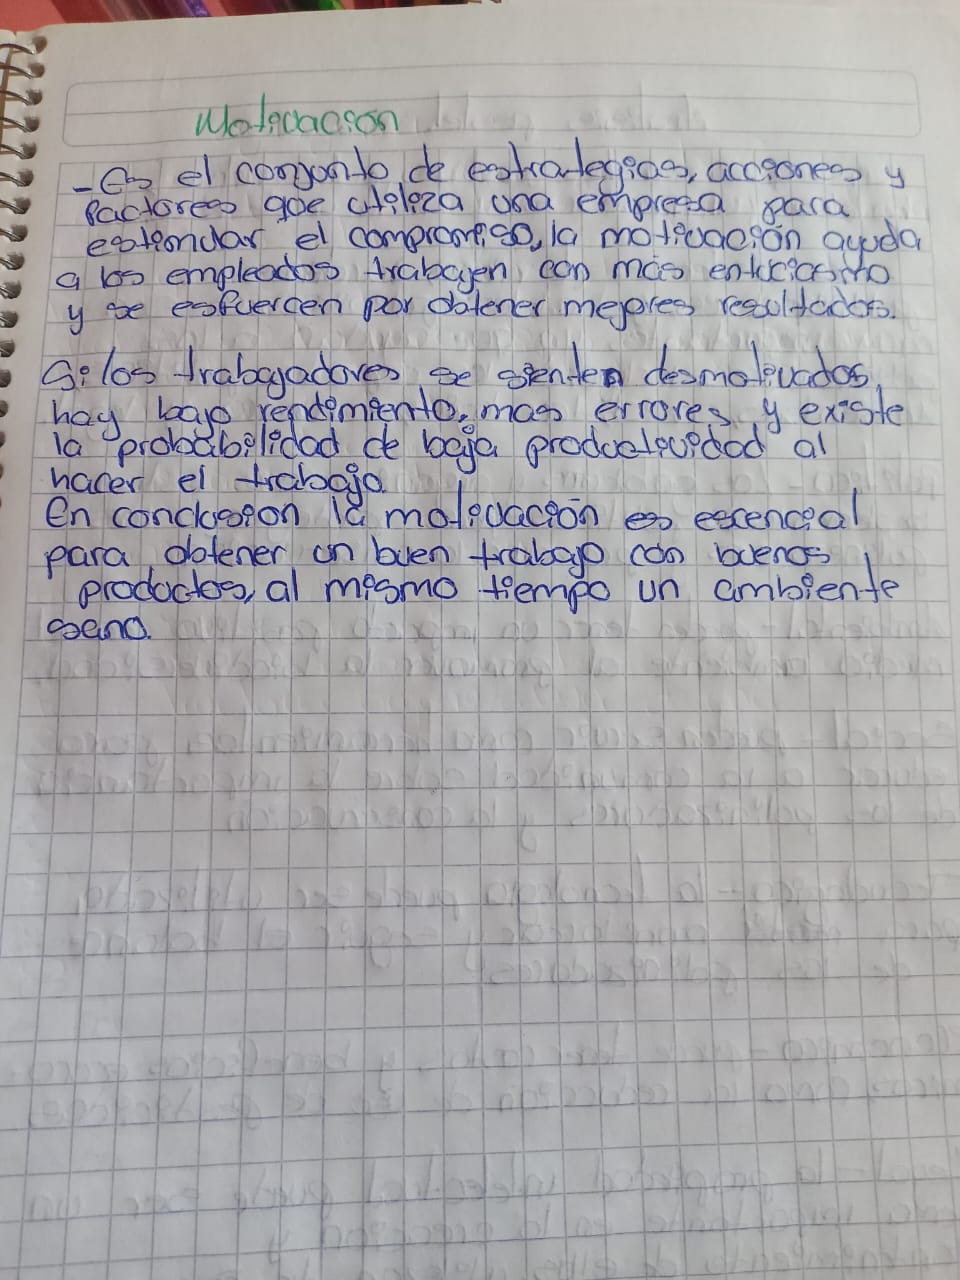 Motivacion
- Es el conjunto de estrategias, acciones y
factores que utiliza una empresa para
estiondar el compromiso, la motivación ayuda
a los empleados trabajen con más entuciasmo
y se esfuercen por obtener mejores resultados.
Si los trabajadores se sienten desmotivados,
hay bajo rendimiento, mas errores y existe
la probabilidad de baja productividad al
hacer el trabajo
En conclusion la motivación es escencial
para obtener un buen trabajo con buenos
productos, al mismo tiempo un ambiente
sano.